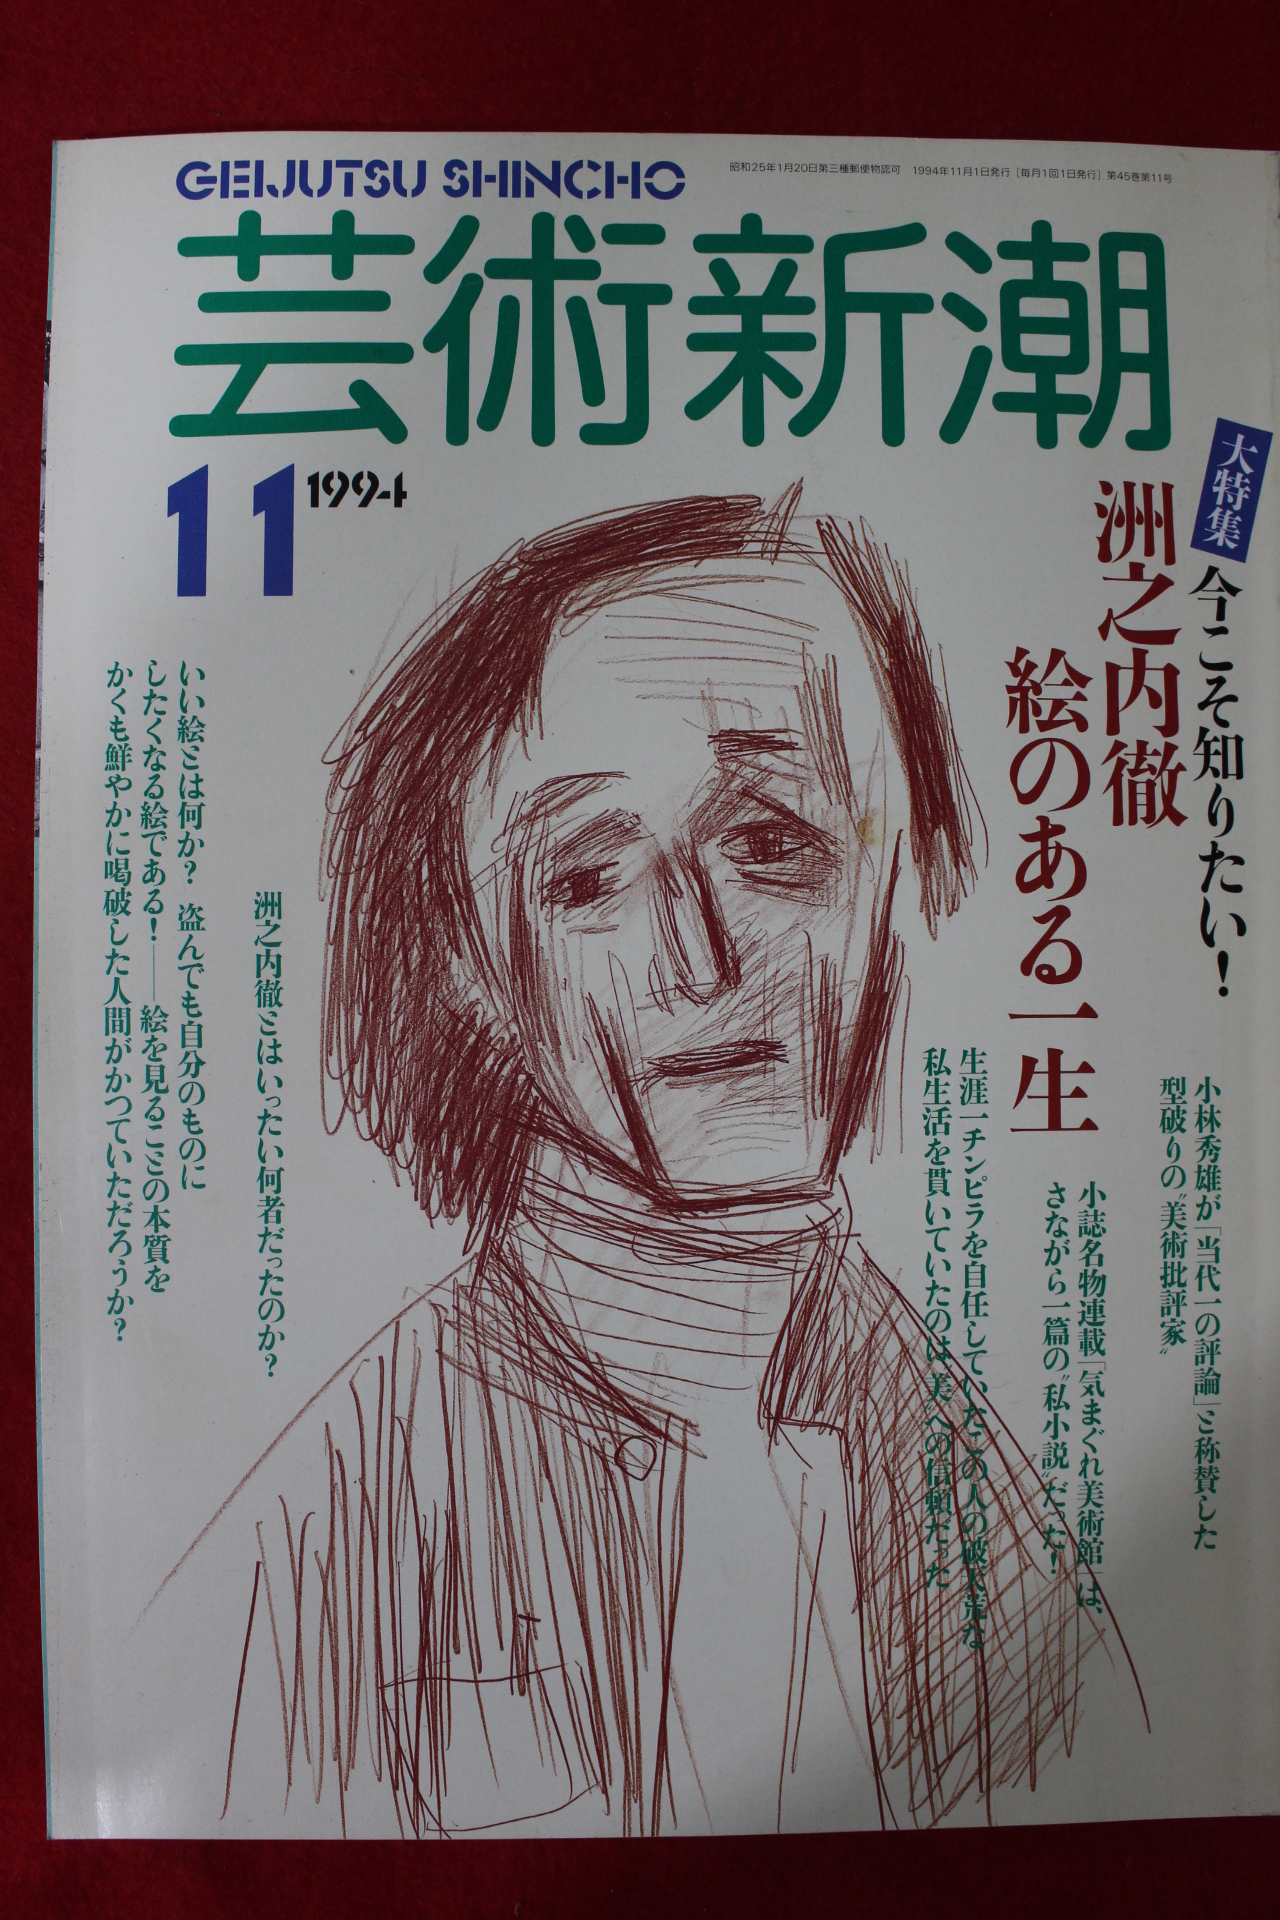 GEIJUTSU SHINCHO
昭和25年1月20日第三種郵便物認可 1994年11月1日発行［毎月1回1日発行］第45巻第11号
芸術新潮
11 1994
大特集
今こそ知りたい！
洲之内徹
絵のある一生
小林秀雄が「当代一の評論」と称賛した
型破りの〝美術批評家〟
小誌名物連載「気まぐれ美術館」は、
さながら一篇の〝私小説〟だった！
生涯一チンピラを自任していたこの人の破天荒な
私生活を貫いていたのは〝美〟への信頼だった
洲之内徹とはいったい何者だったのか？
いい絵とは何か？ 盗んでも自分のものに
したくなる絵である！──絵を見ることの本質を
かくも鮮やかに喝破した人間がかつていただろうか？